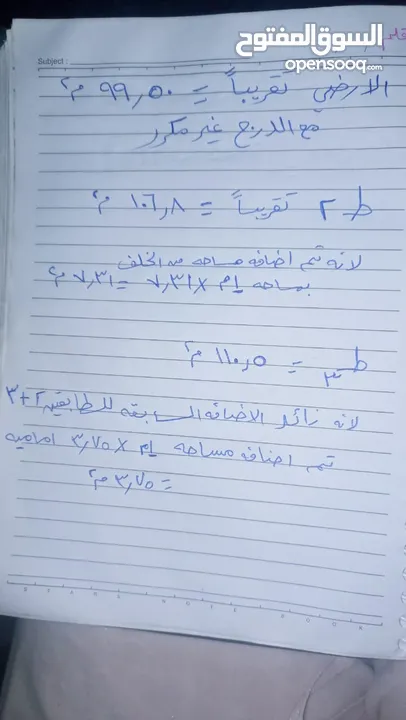 السوق المفتوح
opensooq.com
Subject :
الارضي تقريباً = ٩٩,٥٠ م٢
مع الدرج غير مكرر
ط ٢ تقريباً = ١٠٦,٨ م٢
لانه تم اضافه مساحه من الخلف
بمساحه ١م × ٧,٣١ = ٧,٣١ م٢
ط ٣ = ١١٠,٥ م٢
لانه زائد الاضافه السابقه للطابقين ٢+٣
تم اضافه مساحه ١م × ٣,٧٥ اماميه
= ٣,٧٥ م٢